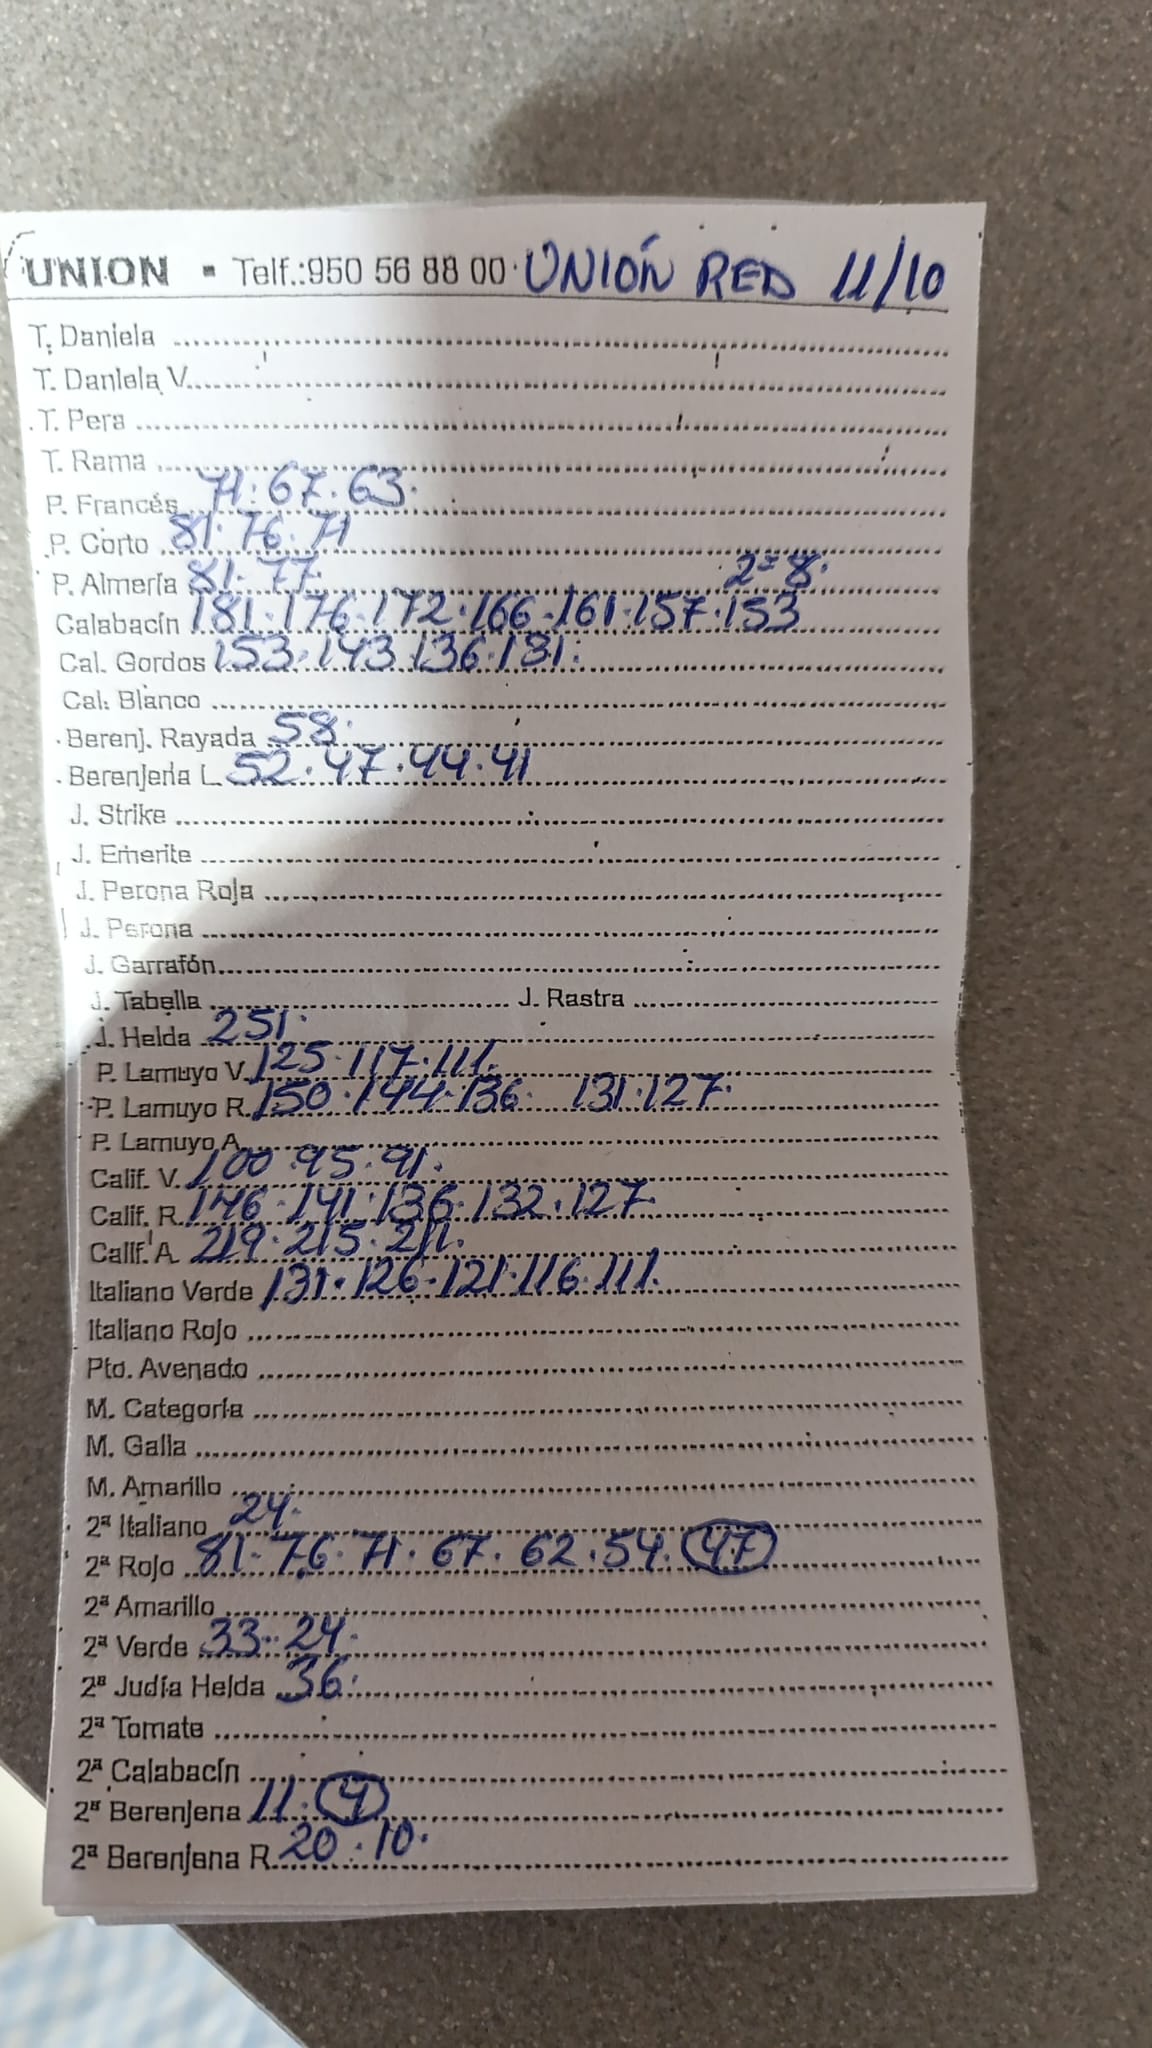 UNION - Telf.:950 56 88 00 UNIÓN RED 11/10
T. Daniela
T. Daniela V.
T. Pera
T. Rama
P. Francés 71. 67. 63.
P. Corto 81. 76. 71
P. Almería 81. 77. 2ª 8.
Calabacín 181. 176. 172. 166. 161. 157. 153
Cal. Gordos 153. 143. 136. 131.
Cal. Blanco
Berenj. Rayada 58.
Berenjena L. 52. 47. 44. 41
J. Strike
J. Emerite
J. Perona Roja
J. Perona
J. Garrafón
J. Tabella J. Rastra
J. Helda 251.
P. Lamuyo V. 125. 117. 111.
P. Lamuyo R. 150. 144. 136. 131. 127.
P. Lamuyo A.
Calif. V. 100. 95. 91.
Calif. R. 146. 141. 136. 132. 127.
Calif. A. 219. 215. 211.
Italiano Verde 131. 126. 121. 116. 111.
Italiano Rojo
Pto. Avenado
M. Categoría
M. Galia
M. Amarillo
2ª Italiano 24.
2ª Rojo 81. 76. 71. 67. 62. 54. 47
2ª Amarillo
2ª Verde 33. 24.
2ª Judía Helda 36.
2ª Tomate
2ª Calabacín
2ª Berenjena 11. 4
2ª Berenjena R. 20. 10.